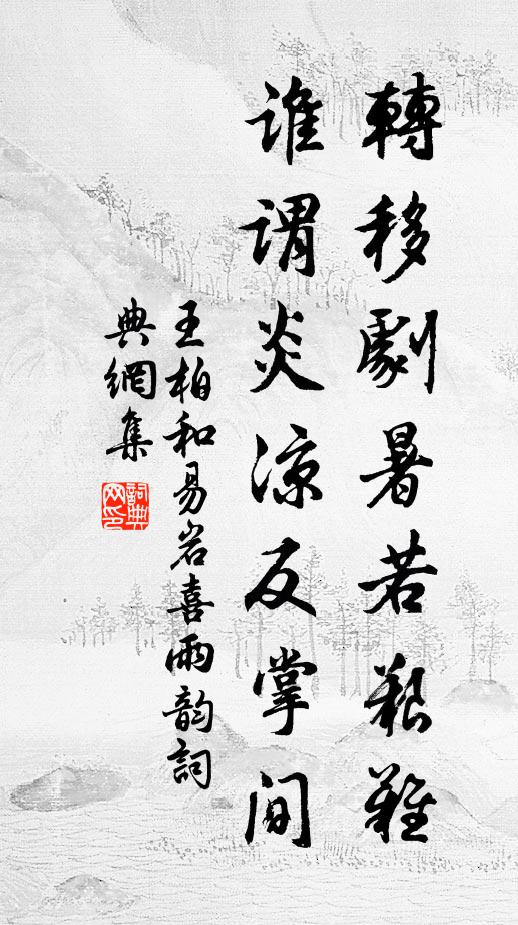 轉移劇暑若艱難
誰謂炎涼反掌間
王柏和易岩喜雨韵詞
典網集
詞典网印